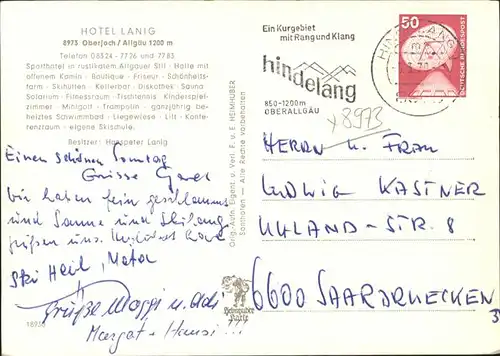 HOTEL LANIG
8973 Oberjoch / Allgäu 1200 m
Telefon 08324 - 7726 und 7783
Sporthotel im rustikalem Allgäuer Stil - Halle mit
offenem Kamin - Boutique - Friseur - Schönheits-
farm - Skihütten - Kellerbar - Diskothek - Sauna
Solarium - Fitnessraum - Tischtennis Kinderspiel-
zimmer - Minigolf - Trampolin - ganzjährig be-
heiztes Schwimmbad - Liegewiese - Lift - Konfe-
renzraum - eigene Skischule.
Besitzer: Hanspeter Lanig
Einen schönen Sonntag
Grüsse
wir haben fein
und Sonne und
grüßen uns.
Ski Heil,
Grüße u.
Margot + Hansi !!!
18938
Orig.-Aufn. Eigent. u. Verl. F. u. E. HEIMHUBER
Sonthofen - Alle Rechte vorbehalten
Heimhuber
Karte
Ein Kurgebiet
mit Rang und Klang
hindelang
850-1200m
OBERALLGÄU
HINDELANG
50
DEUTSCHE BUNDESPOST
x8973
HERRN u. FRAU
LUDWIG KASTNER
UHLAND-STR. 8
6600 SAARBRUECKEN
3